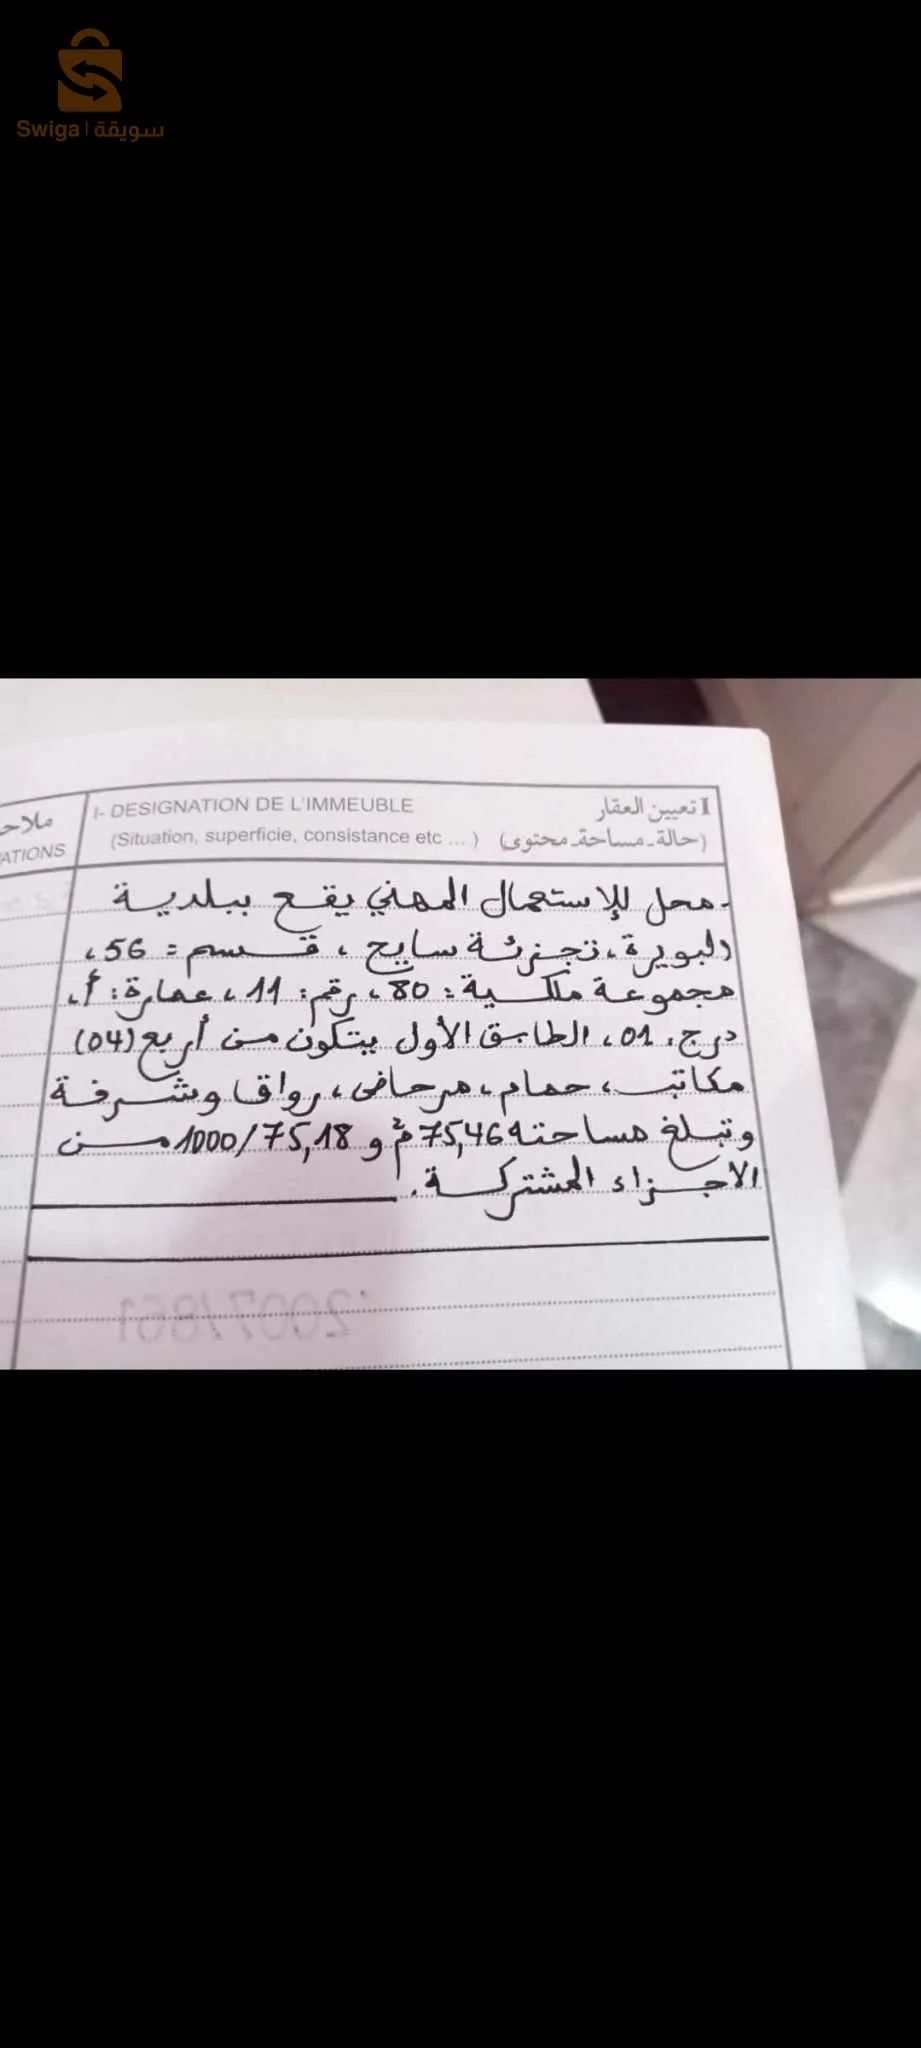 Swiga | سويقة
ملاحـ
ATIONS
I- DESIGNATION DE L'IMMEUBLE
(Situation, superficie, consistance etc ... )
I تعيين العقار
(حالة ـ مساحة ـ محتوى)
ـ محل للإستعمال المهني يقع ببلدية
البويرة، تجزئة سايح، قسم: 56،
مجموعة ملكية: 80، رقم: 11، عمارة: أ،
درج: 01، الطابق الأول يتكون من أربع (04)
مكاتب، حمام، مرحاض، رواق وشرفة
وتبلغ مساحته 75,46 م² و 1000/75,18 من
الاجزاء المشتركة.
2007/861